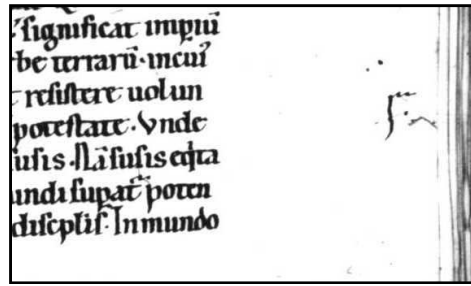 significat impiū
be terrarū·incui᾽
resistere uolun
potestate. Vnde
usis. Nā susis
undi supat poten
In mundo